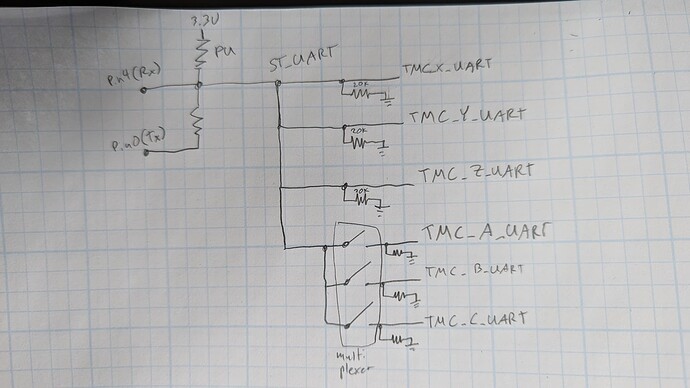 3.3V
PU
Pin4(Rx)
ST_UART
TMC_X_UART
20K
Pin0(Tx)
TMC_Y_UART
20K
TMC_Z_UART
20K
TMC_A_UART
TMC_B_UART
TMC_C_UART
multi
plexer